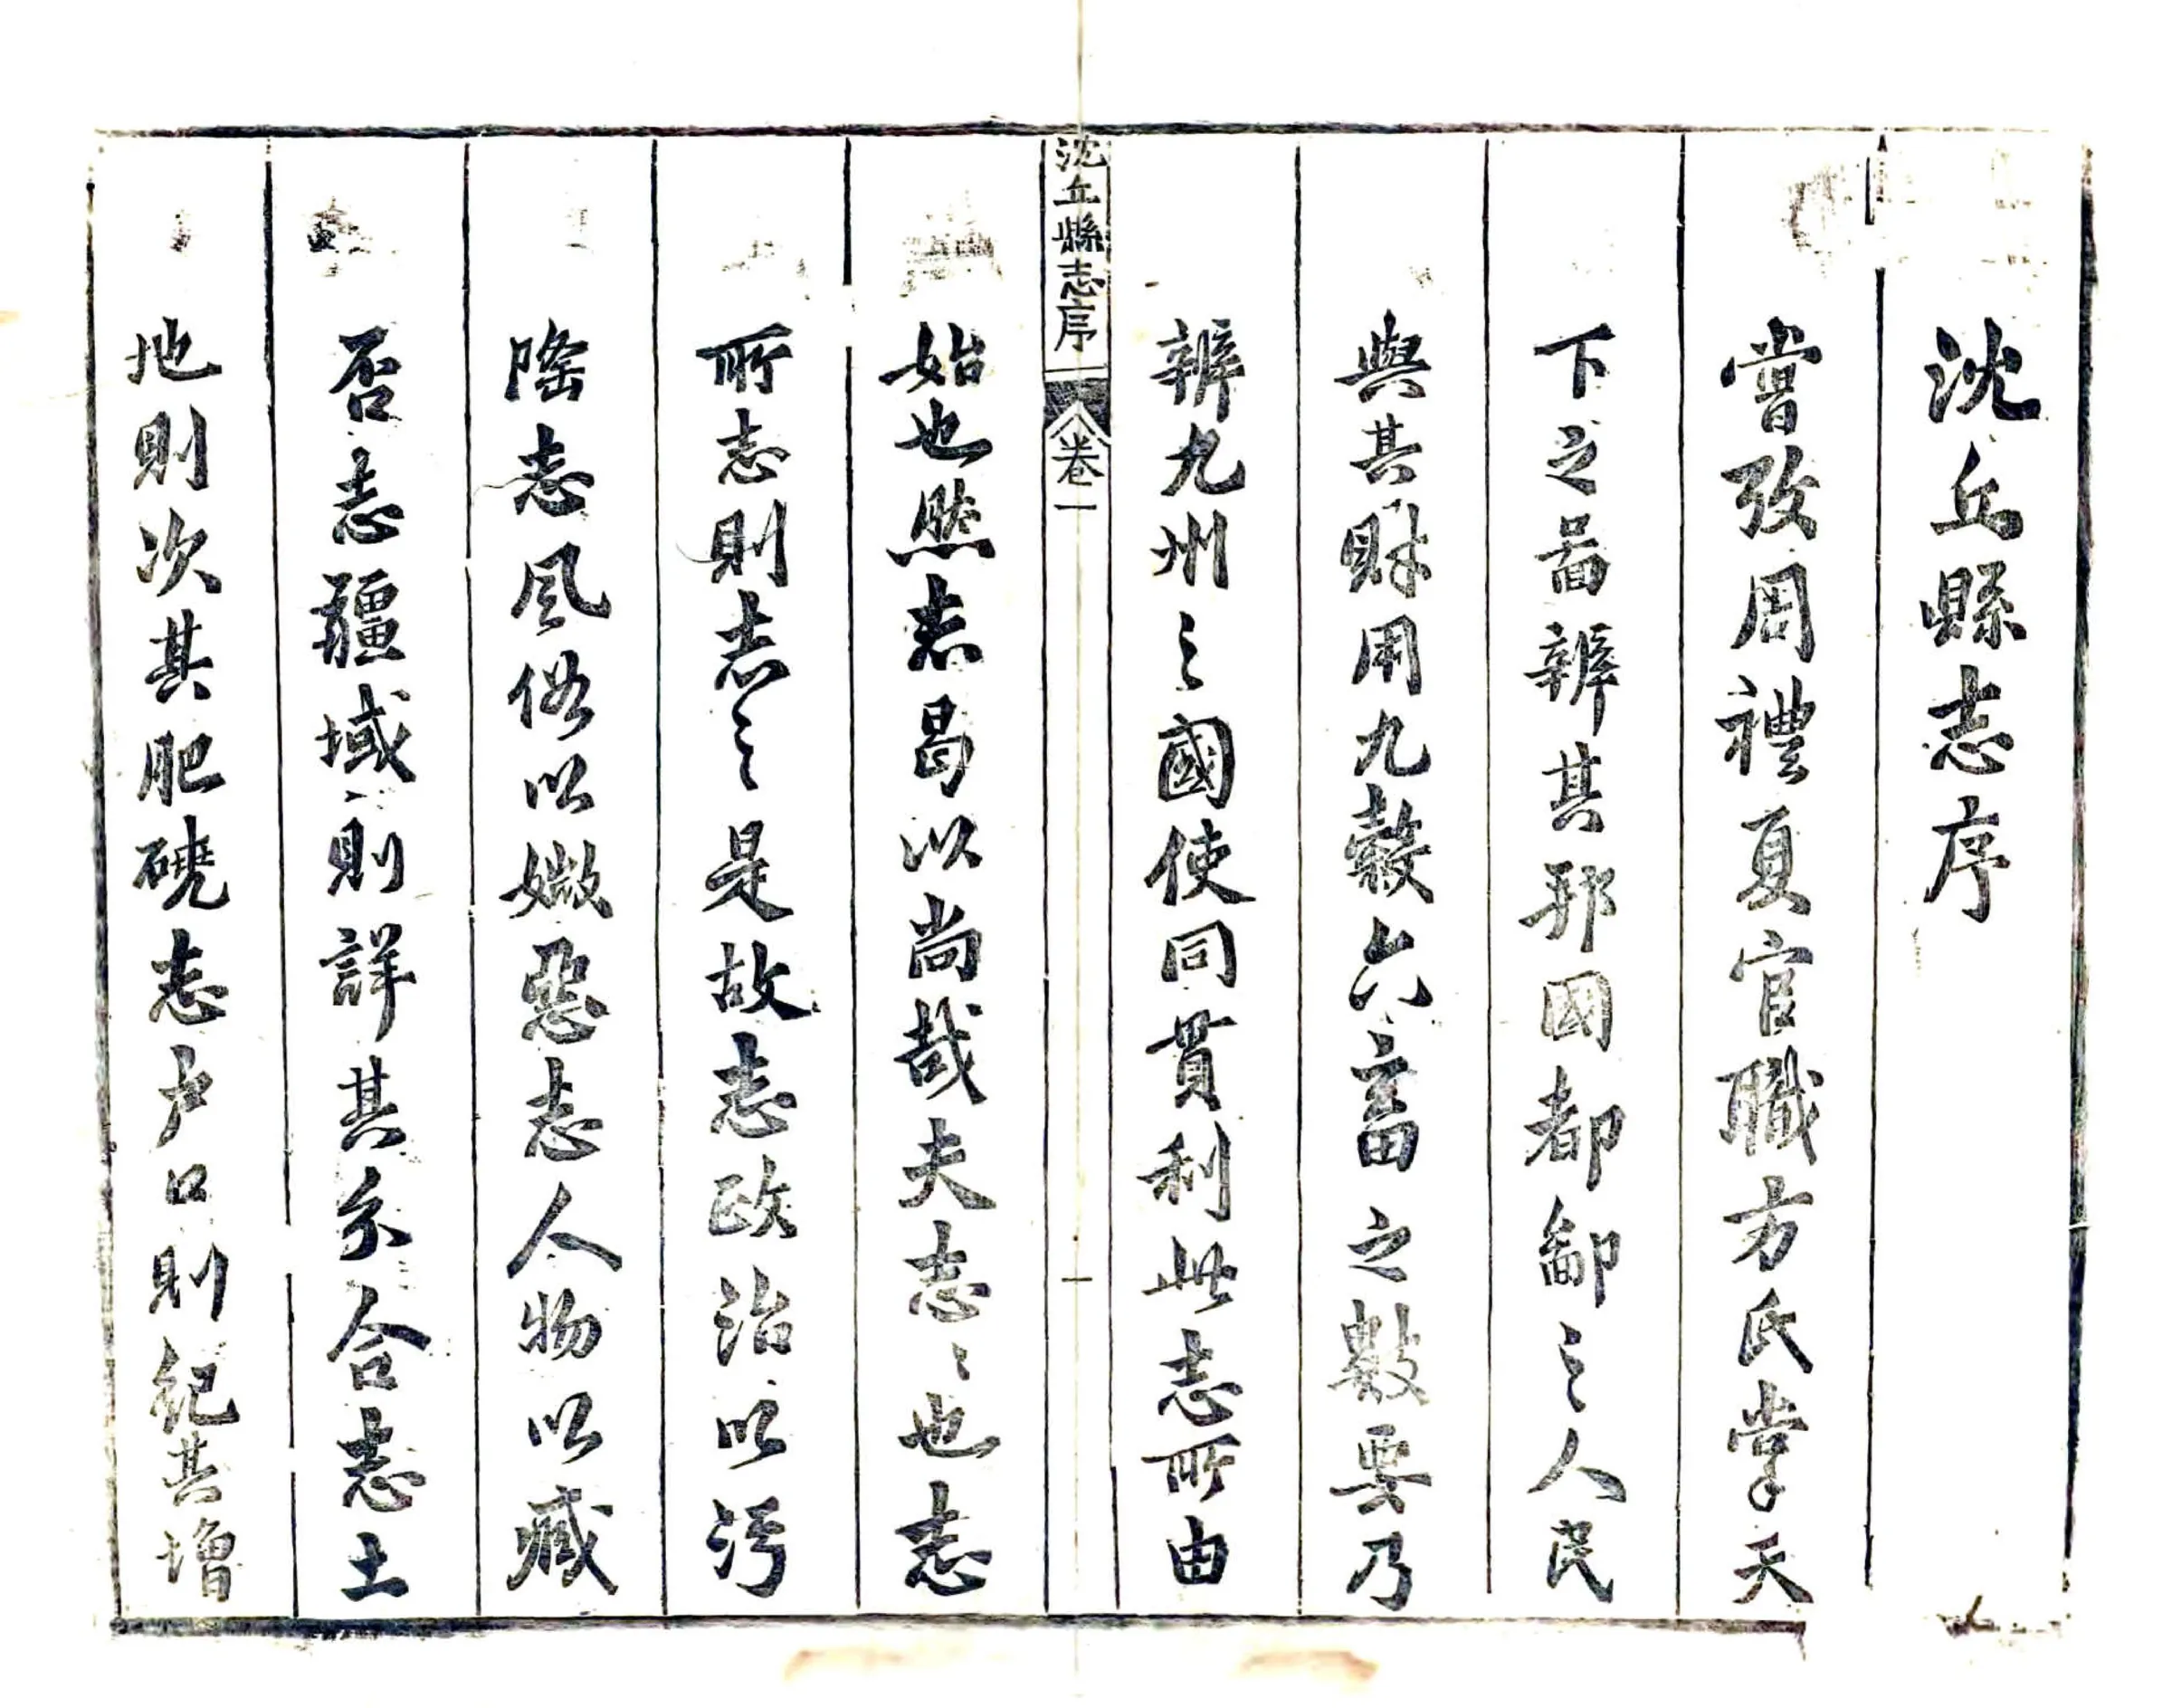 沈丘縣志序
嘗攷周禮夏官職方氏掌天
下之啚辨其邦國都鄙之人民
與其財用九穀六畜之數要乃
辨九州之國使同貫利此志所由
沈丘縣志序
卷一
一
始也然志曷以尚哉夫志〻也志
所志則志之是故志政治以污
隆志風俗以媺惡志人物以臧
否志疆域則詳其分合志土
地則次其肥磽志户口則紀其增